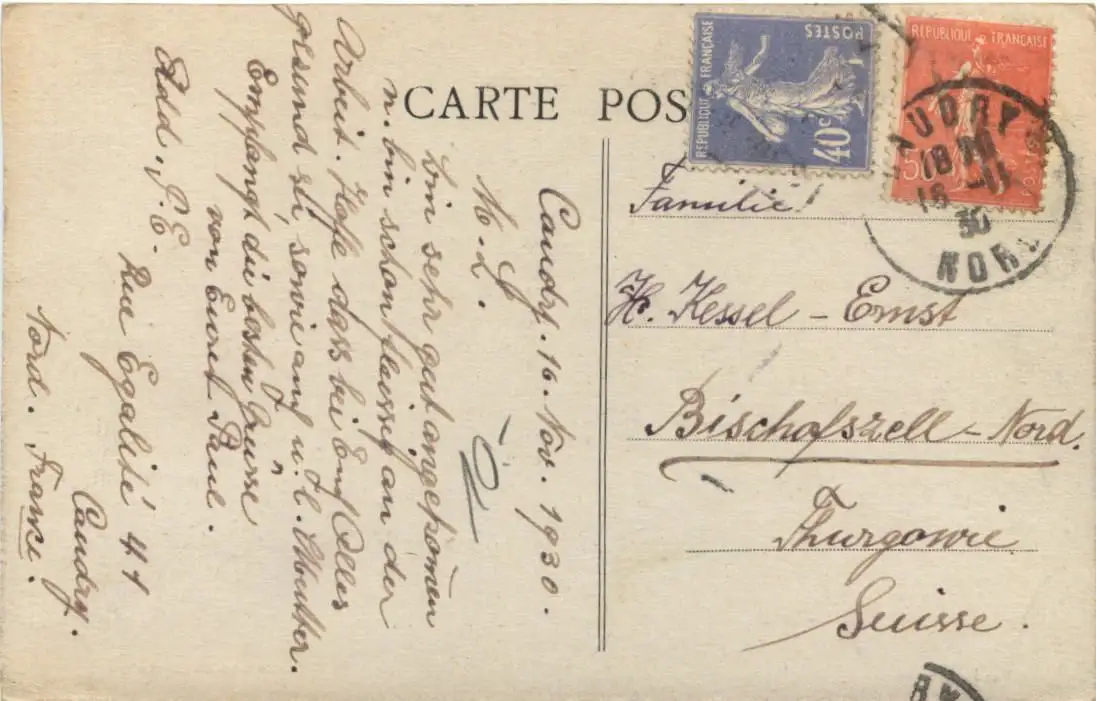 CARTE POS
RÉPUBLIQUE FRANÇAISE
POSTES
40c
RÉPUBLIQUE FRANÇAISE
50
AUDRY
18
16 -11
30
NORD
Familie
H. Kessel - Ernst
Bischofszell - Nord.
Thurgovie
Suisse.
Caudry. 16. Nov. 1930.
M. L.
bin sehr gut angekom̄en
n. bin schon fleissig an der
Arbeit. Hoffe dass bei Euch Alles
gesund sei, sowie auch u. l. Mutter.
Empfangt die besten Grüsse
von Eurem Paul.
Add. P. E.
Rue Egalité 41
Caudry.
Nord. France.
RY